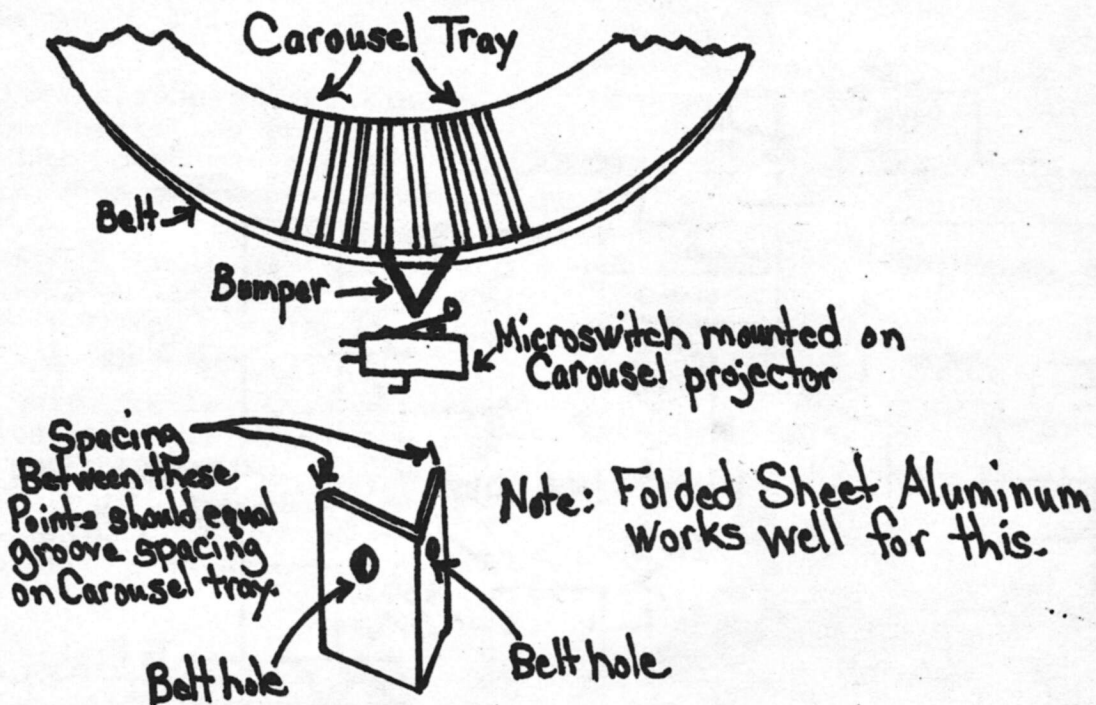 Carousel Tray
Belt
Bumper
Microswitch mounted on
Carousel projector
Spacing
Between these
Points should equal
groove spacing
on Carousel tray.
Note: Folded Sheet Aluminum
works well for this.
Belt hole
Belt hole